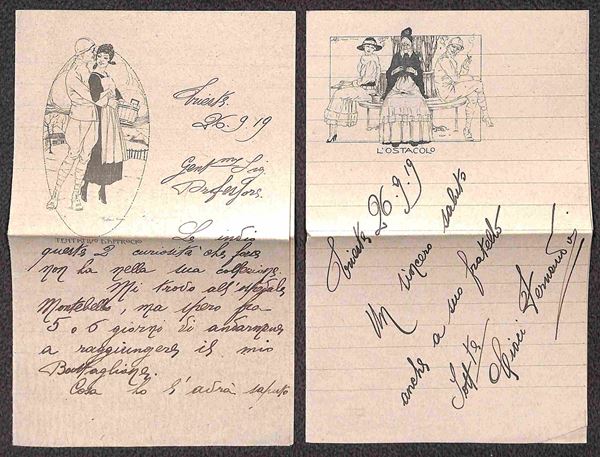 Trieste
26.9.19
Gent.mo Sig.
Professore.
TENTATIVO D'APPROCIO
Le invio
queste 2 curiosità che forse
non ha nella sua collezione.
Mi trovo all'ospedale
Montebello, ma spero fra
5 o 6 giorno di andarmene
a raggiungere il mio
Battaglione.
Cosa ho l'avrà saputo
L'OSTACOLO
Trieste 26.9.19
Un sincero saluto
anche a suo fratello
Sott.te
Fernando